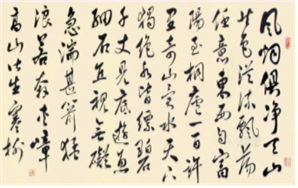 風烟俱净天山
共色從流飄蕩
任意東西自富
陽至桐廬一百許
里奇山異水天下
獨絶水皆縹碧
千丈見底游魚
細石直視無礙
急湍甚箭猛
浪若奔夾嶂
高山皆生寒樹